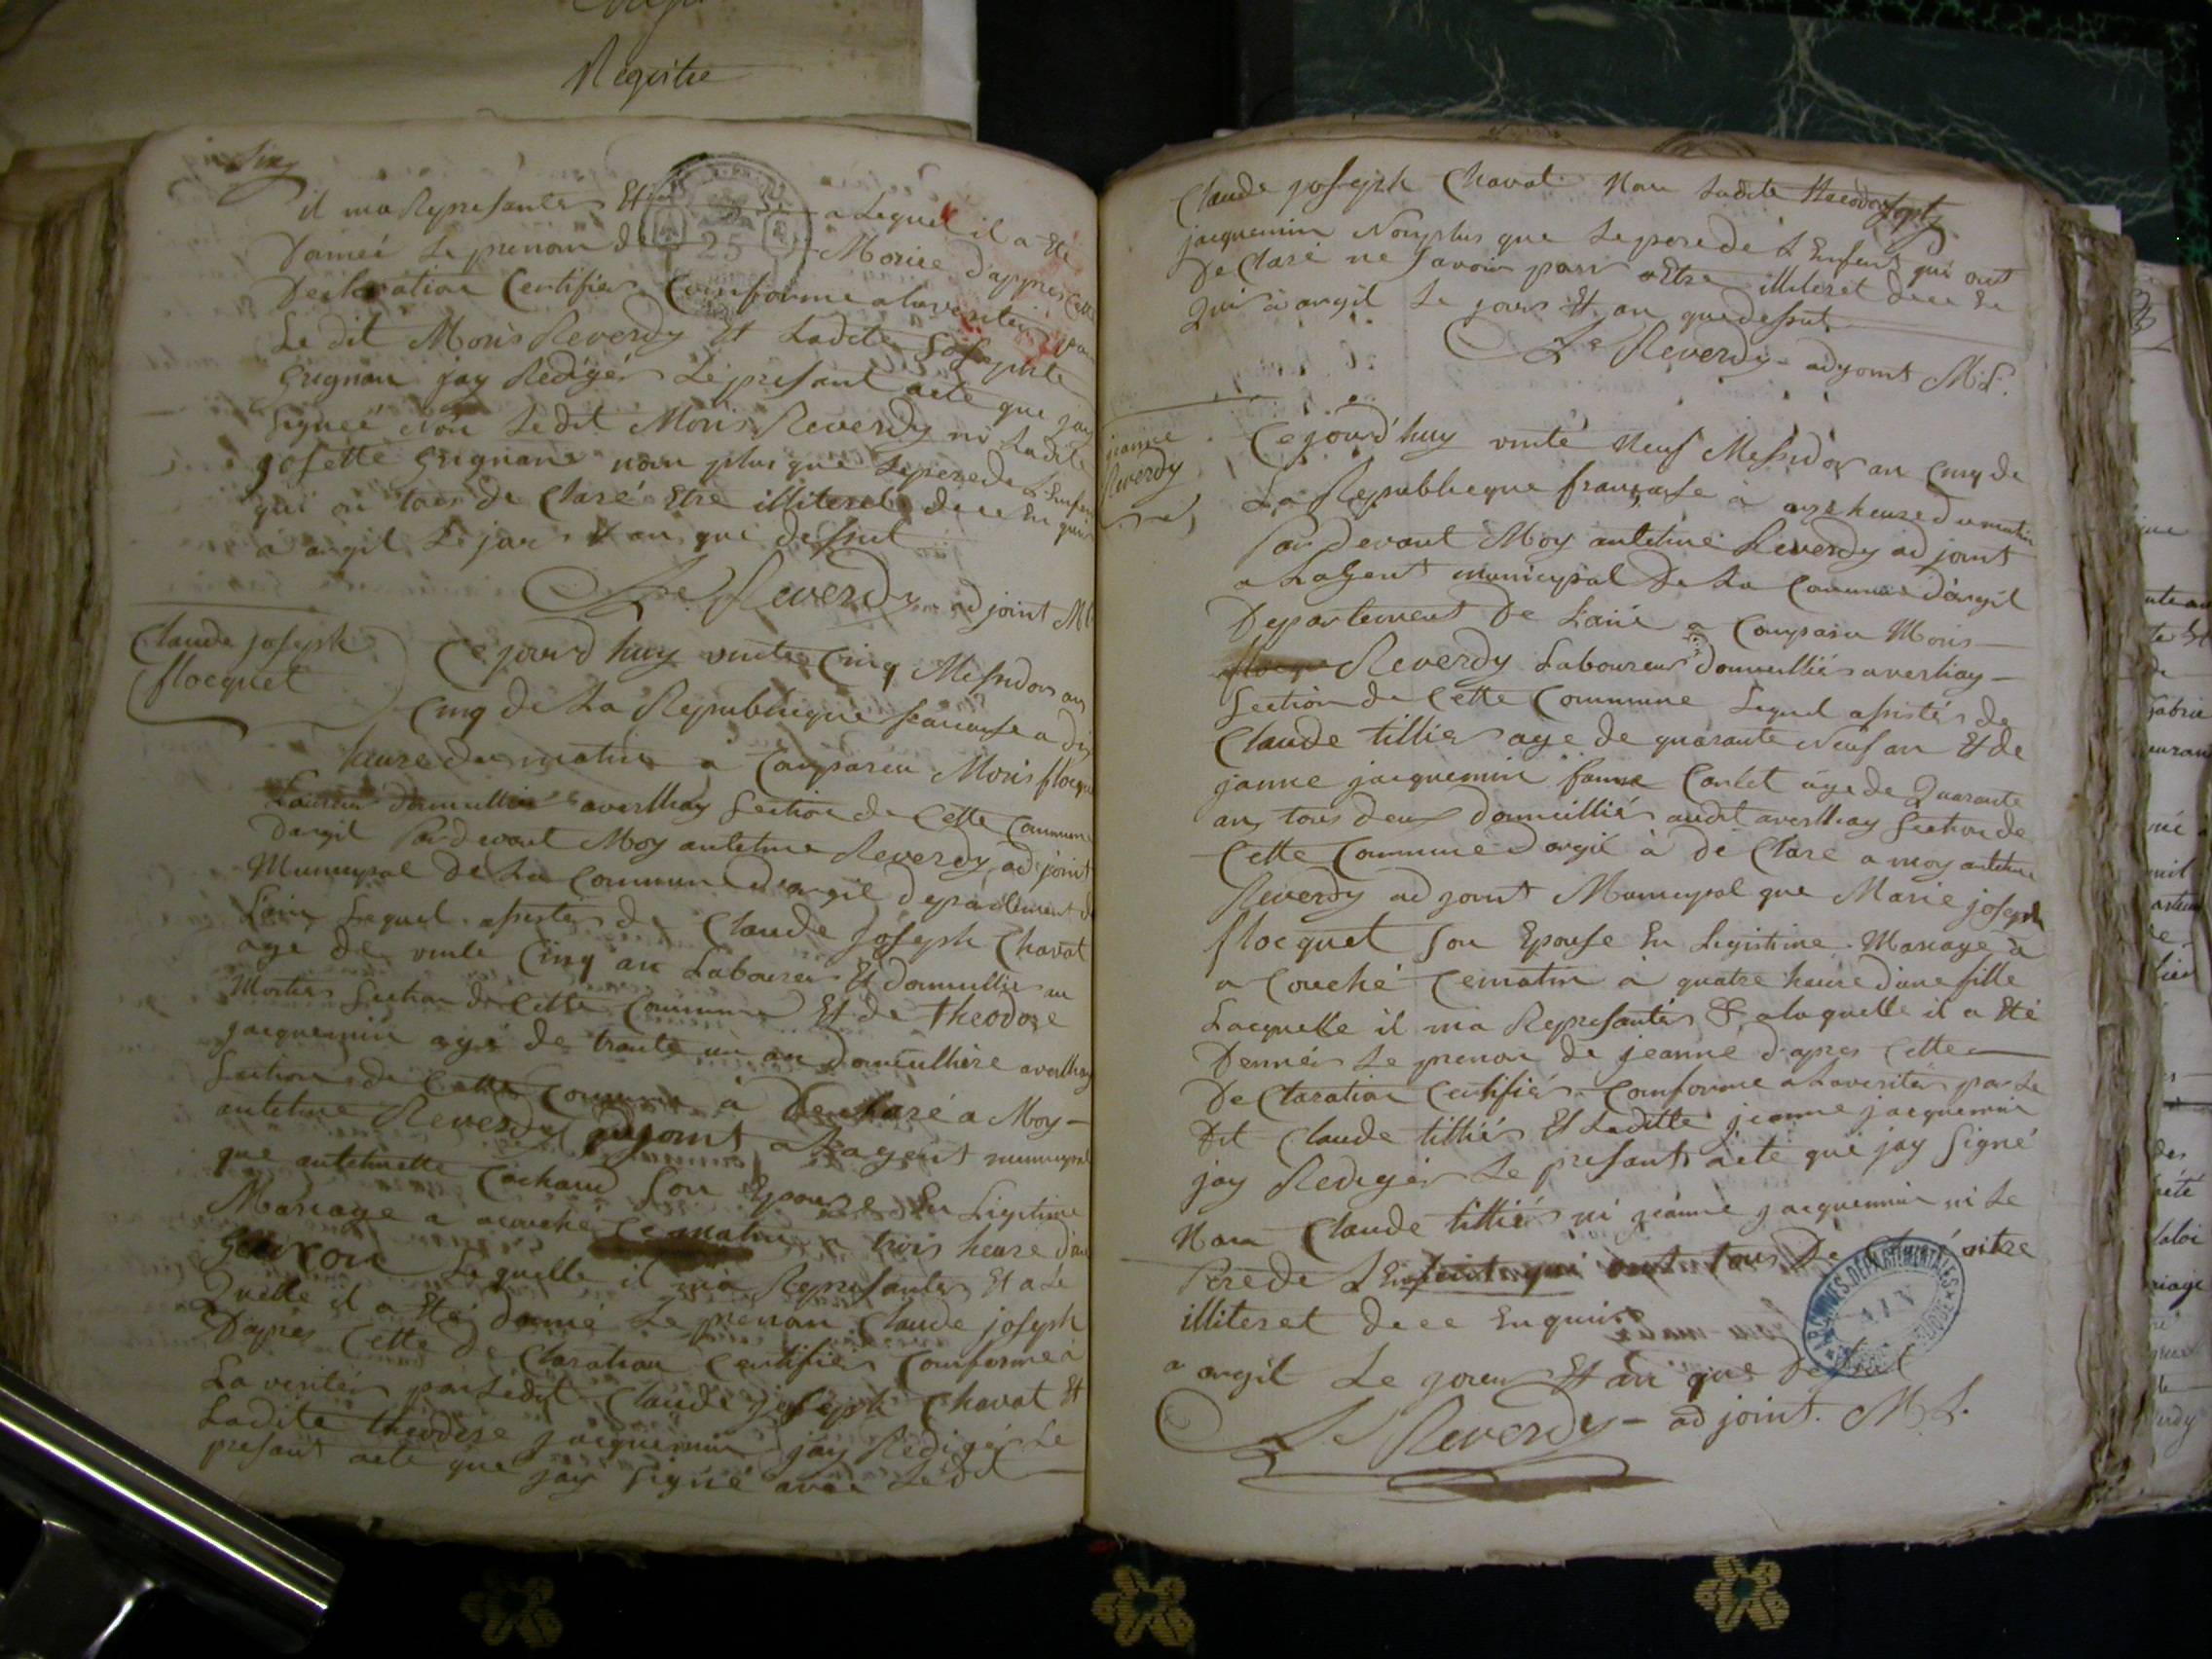 Registre
Sing
il ma Represantér Et a Lequel il a Eté
Donneé Le prenom de Morice d'appres Cette
Declaration Certifiér Comforme a la veritér par
Le dit Moris Reverdy Et Ladite Josephte
Grignan jay Redigér Le presant acte que jay
Signeé Non Ledit Moris Reverdy ni Ladite
Josette Grignane non plus que Leperede L'Enfent
qui on tous de Claré Estre illiteret dece En quis
a argil Le jour Et an que dessut
Le Reverdy adjoint M
Claude joseph
flocquet
Cejourd huy vintes Cinq Messidors an
Cinq de La Republicque francaise a dix
heure du matin a Comparu Moris flocqu
Domicillié averthay Section de Cette Commune
Dargil Par devant Moy antelme Reverdy adjoint
Municypal De La Commune d'argil departement de
L'ain Lequel assistér de Claude Joseph Chavat
age de vinte Cinq an Laboureur Et domicillié au
Mortier Section de Cette Commune Et de Theodore
jacquemin agé de trante un an domicilliere averthay
Section de Cette Commune à Declaré a Moy -
antelme Reverdy adjoint a Lagent municypal
que antelmette Cochaud Son Epouse En Ligitime
Mariage a acouché Ce matin a trois heure d'un
Garcon Laquelle il ma Represantér Et a La
Quelle il a Eté donné Le prenom Claude joseph
D'apres Cette de Claration Certifiér Comforme à
La veritér par Ledit Claude joseph Chavat Et
Ladite theodore jacquemin jay Redigér Le
presant acte que jay Signé avec Ledit
Claude joseph Chavat Non Ladite theodore Sept
jacquemin Nonplus que Leperede L'Enfent qui ont
De Claré ne Savoir pour Estre illiteret dece En
Quis à argil Le jour Et an quedessut
Le Reverdy - adyoint M.L.
jeanne
Reverdy
Cejourd'huy vinté Neuf Messidor an Cinq de
La Republicque francaise à onze heure du matin
Par devant Moy antelme Reverdy adjoint
a Lagent municypal De La Commune d'argil
Departement De L'ain a Comparu Moris -
Reverdy Laboureur Domicillié averthay -
Section de Cette Commune Lequel assistér de
Claude tillier age de quarante Neuf an Et de
janne jacquemin famme Carlet agé de Quarante
an, tous deux Domicillié audit averthay Section de
Cette Commune Dargil à de Claré a moy antelme
Reverdy adjoint Municypal que Marie joseph
flocquet Son Epouse En Legitime Mariage à
a Couché Cematin à quatre heure d'une fille
Lacquelle il ma Represantér Et alaquelle il a Eté
Donnér Le prenom de jeanne d'apres Cette
De Claration Certifiér Comforme a La veritér par Le
Dit Claude tilliér Et Laditte jeanne jacquemin
jay Redigér Le presant acte que jay Signé
Non Claude tilliér ni jeanne jacquemin ni Le
Perede L'Enfent qui ont tous De Claré aitre
illiteret dece En quis
a argil Le jour Et an que Dessut
Le Reverdy - adjoint. M.L.
ARCHIVES DEPARTEMENTALES
AIN